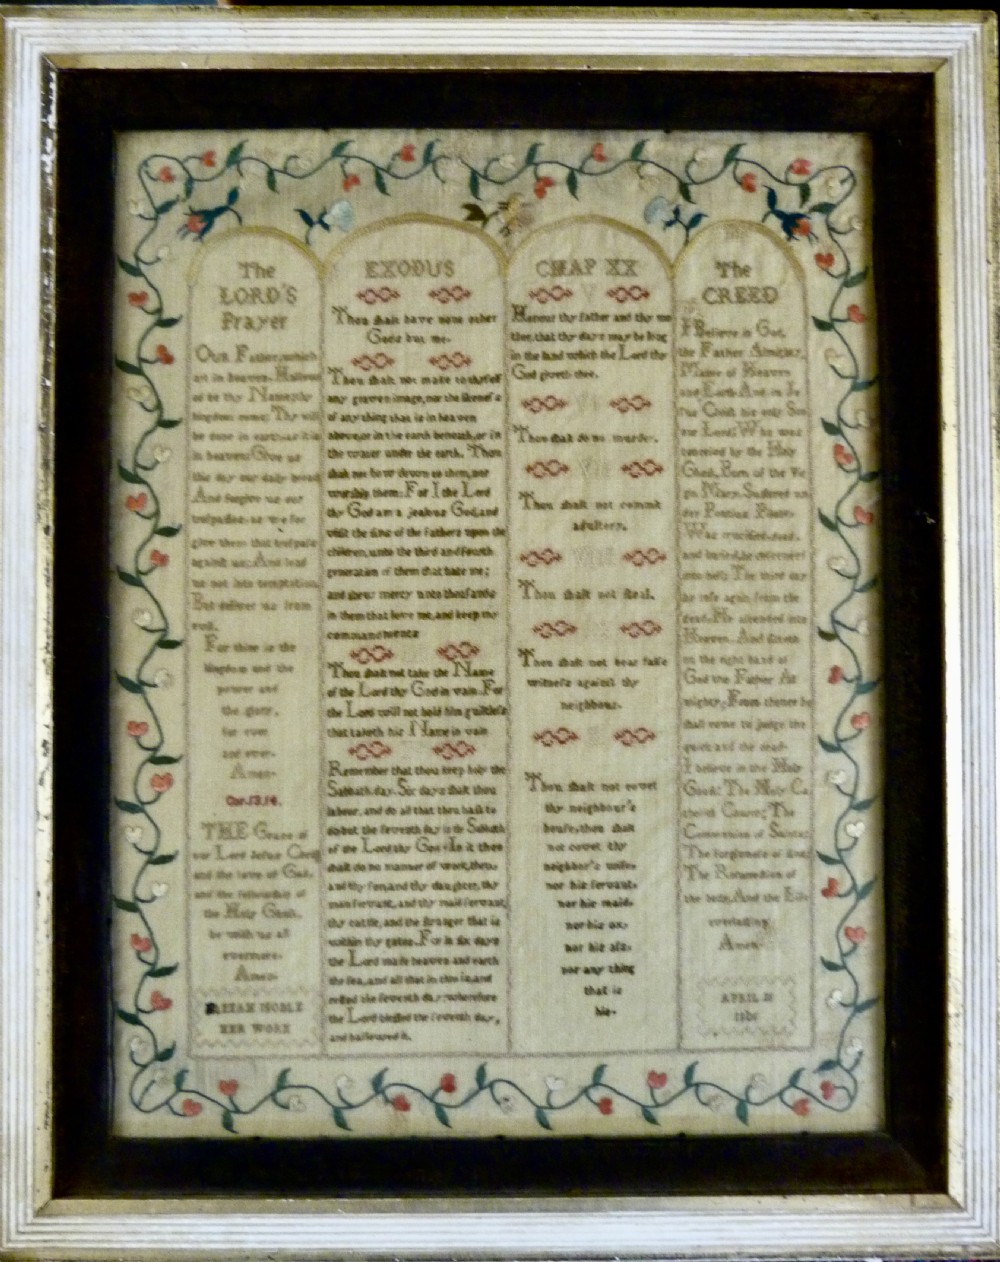 The
LORD'S
Prayer
OUR Father, which
art in heaven. Hallow
ed be thy Name; thy
kingdom come; Thy will
be done in earth, as it is
in heaven; Give us
this day our daily bread
And forgive us our
trespasses as we for
give them that trespass
against us; And lead
us not into temptation,
But deliver us from
evil.
For thine is the
kingdom and the
power and
the glory,
for ever
and ever.
Amen.
Cor. 13, 14.
THE Grace of
our Lord Jesus Christ
and the love of God,
and the fellowship of
the Holy Ghost,
be with us all
evermore.
Amen.
NOBLE
HER WORK
EXODUS
Thou shalt have none other
Gods but me.
Thou shalt not make to thyself
any graven image, nor the likeness
of any thing that is in heaven
above, or in the earth beneath, or in
the water under the earth. Thou
shalt not bow down to them, nor
worship them: For I the Lord
thy God am a jealous God, and
visit the sins of the fathers upon the
children, unto the third and fourth
generation of them that hate me;
and shew mercy unto thousands
in them that love me, and keep my
commandments
Thou shalt not take the Name
of the Lord thy God in vain. For
the Lord will not hold him guiltless
that taketh his Name in vain
Remember that thou keep holy the
Sabbath day. Six days shalt thou
labour, and do all that thou hast to
do but the seventh day is the Sabbath
of the Lord thy God. In it thou
shalt do no manner of work, thou,
and thy son, and thy daughter, thy
man servant, and thy maid servant,
thy cattle, and the stranger that is
within thy gates. For in six days
the Lord made heaven and earth
the sea, and all that in them is, and
rested the seventh day; wherefore
the Lord blessed the seventh day,
and hallowed it.
CHAP XX
V
Honour thy father and thy mo
ther, that thy days may be long
in the land which the Lord thy
God giveth thee.
VI
Thou shalt do no murder.
VII
Thou shalt not commit
adultery.
VIII
Thou shalt not steal.
Thou shalt not bear false
witness against thy
neighbour.
Thou shalt not covet
thy neighbour's
house, thou shalt
not covet thy
neighbor's wife,
nor his servant,
nor his maid,
nor his ox,
nor his ass,
nor any thing
that is
his.
The
CREED
I Believe in God,
the Father Almighty,
Maker of Heaven
and Earth And in Je
sus Christ his only Son
our Lord; Who was
conceived by the Holy
Ghost, Born of the Vir
gin Mary, Suffered un
der Pontius Pilate,
Was crucified, dead,
and buried, he descended
into hell; The third day
he rose again from the
dead, He ascended into
Heaven, And sitteth
on the right hand of
God the Father Al
mighty; From thence he
shall come to judge the
quick and the dead.
I believe in the Holy
Ghost; The Holy Ca
tholick Church; The
Communion of Saints;
The forgiveness of sins;
The Resurrection of
the body, And the Life
everlasting.
Amen.
APRIL